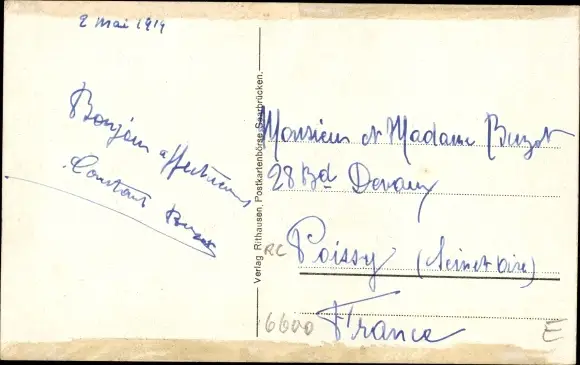 2 mai 1919
Bonjour affectueux
Constant Buzot
Verlag Rithausen, Postkartenbörse Saarbrücken.
Monsieur et Madame Buzot
28 Bd Devaux
RC
Poissy (Seine et Oise)
6600
France
E